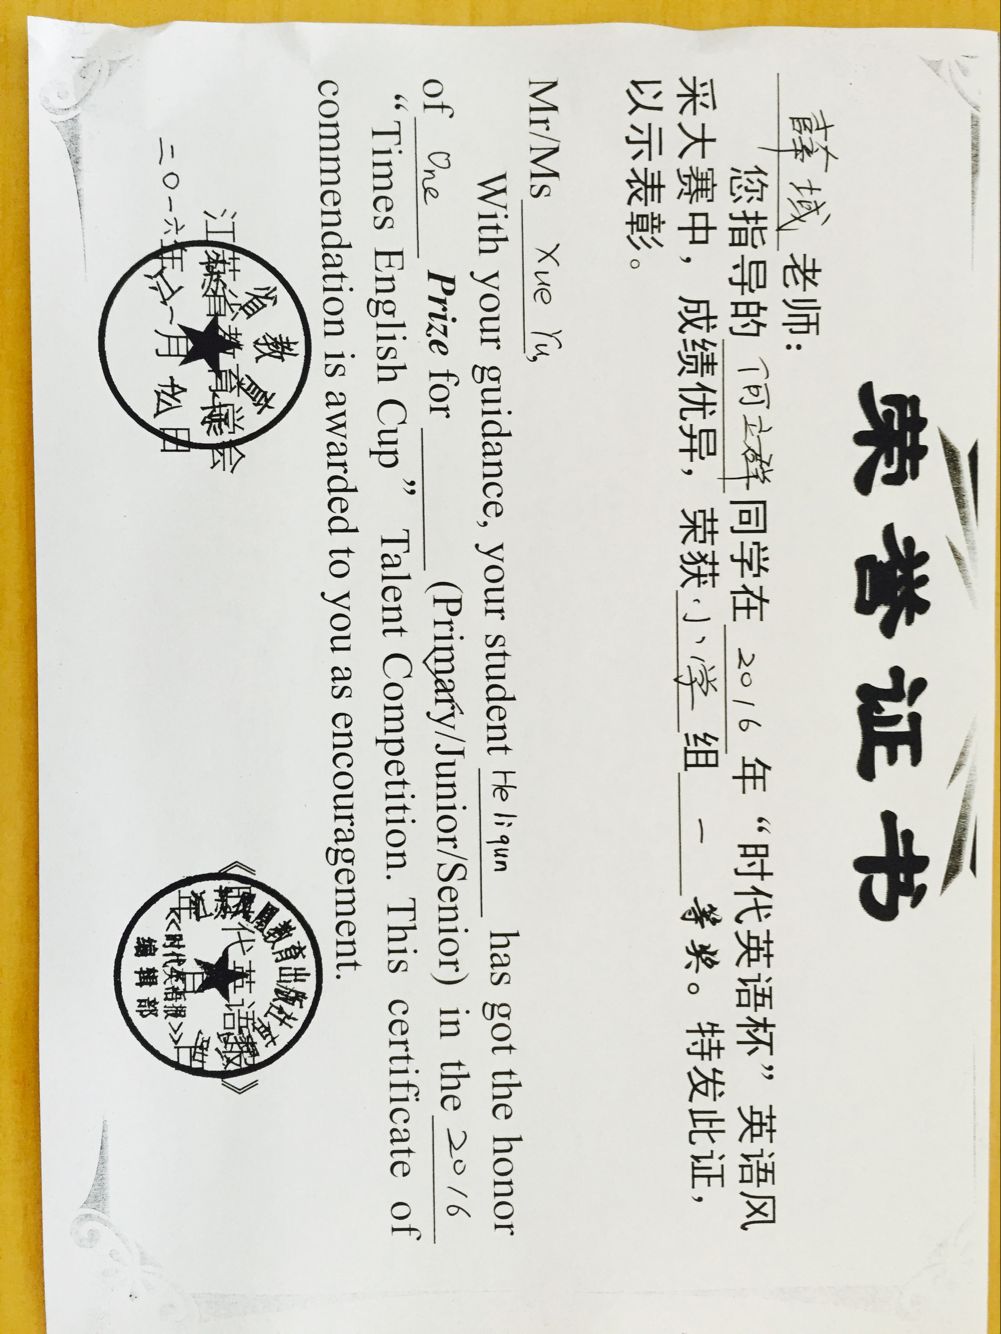 荣誉证书
薛域老师:
您指导的何立群同学在2016年“时代英语杯”英语风
采大赛中，成绩优异，荣获小学组一等奖。特发此证，
以示表彰。
Mr/Ms Xue Yu,
With your guidance, your student He liqun has got the honor
of One Prize for (Primary/Junior/Senior) in the 2016
“Times English Cup” Talent Competition. This certificate of
commendation is awarded to you as encouragement.
江苏省教育学会
二〇一六年 月 日
《时代英语报》
年 月 日
教育出版社
《时代英语报》
编辑部